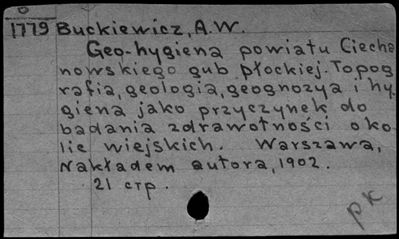 1779 Buckiewicz, A.W.
Geo-hygiena powiatu Ciecha
nowskiego gub płockiej. Topog
rafia, geologia, geognozya i hy-
giena jako przyczynek do
badania zdrawotności oko-
lic wiejskich. Warszawa,
Nakładem autora, 1902.
21 стр.
pk